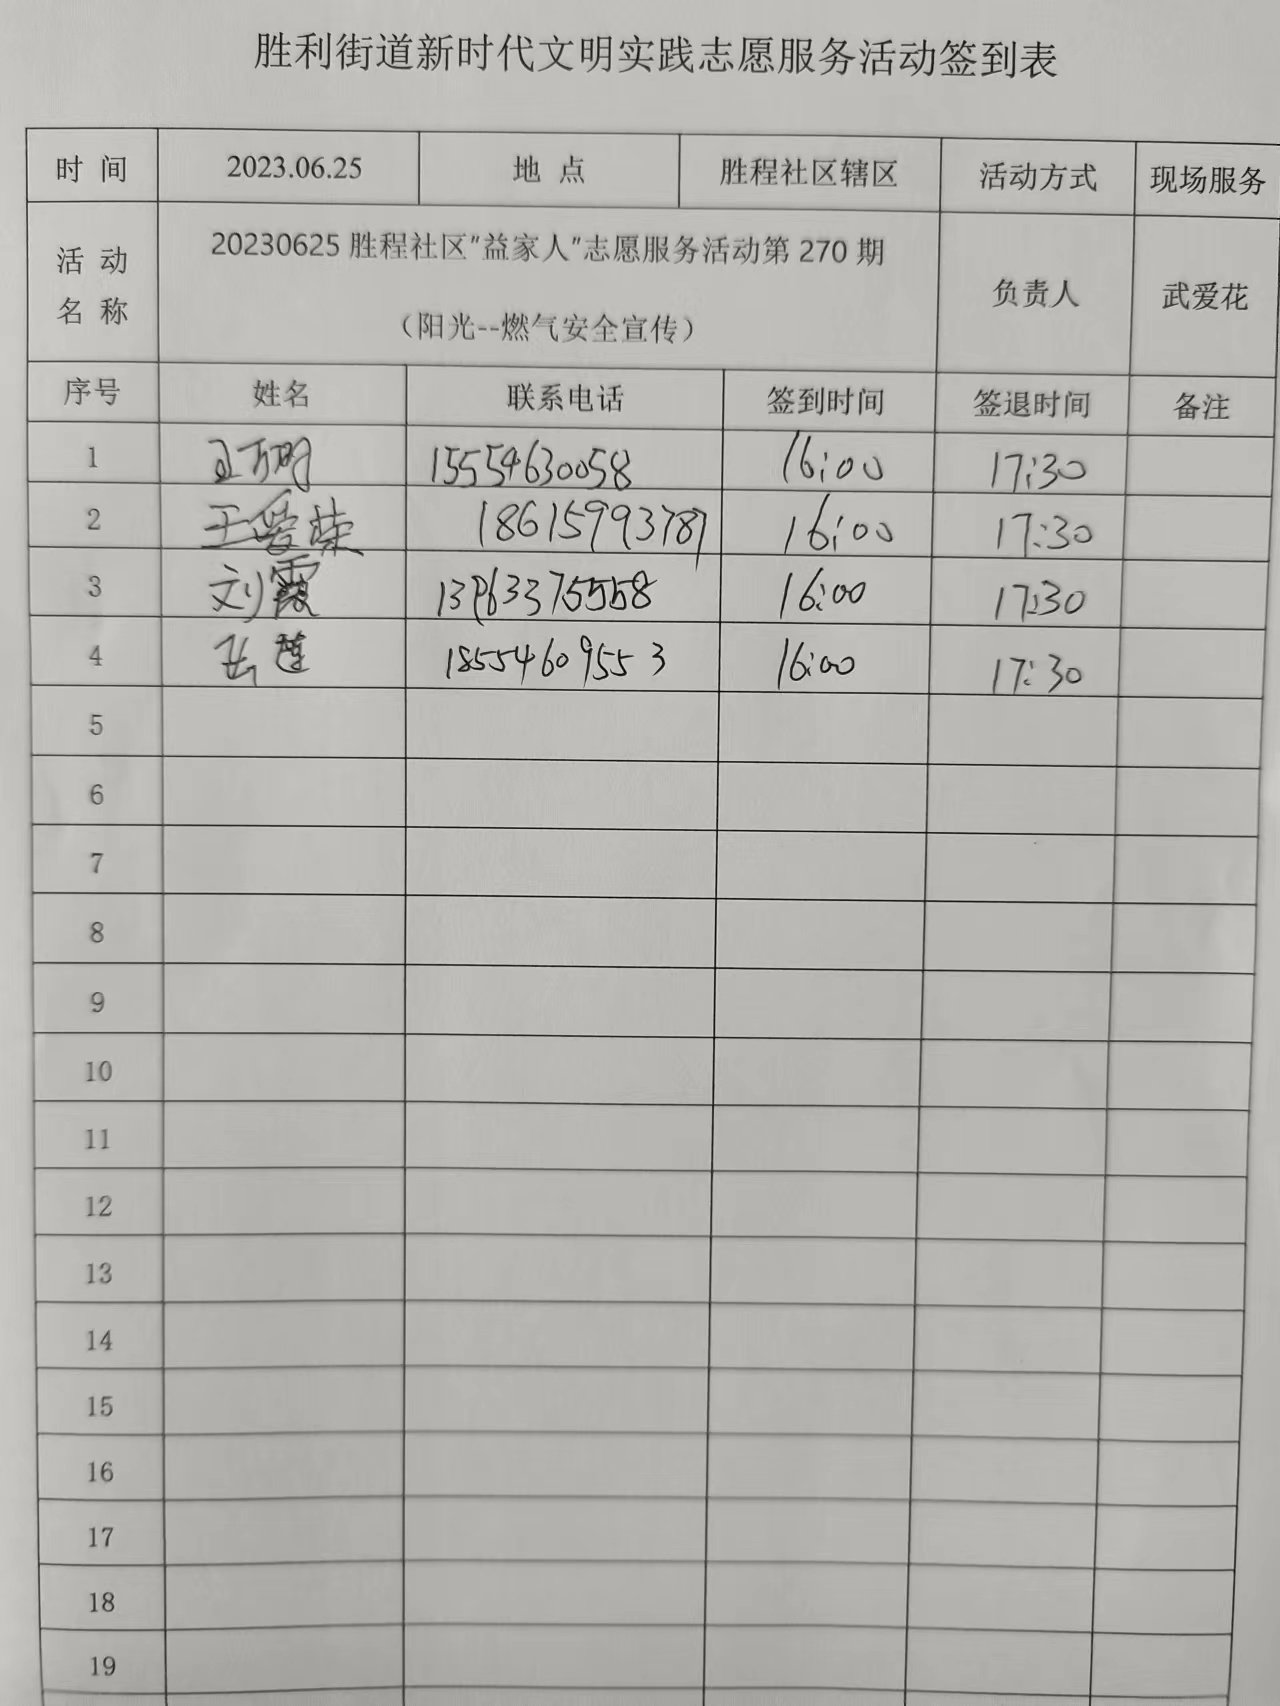 胜利街道新时代文明实践志愿服务活动签到表
时 间 2023.06.25 地 点 胜程社区辖区 活动方式 现场服务
活 动 名 称 20230625 胜程社区"益家人"志愿服务活动第 270 期 负责人 武爱花
（阳光--燃气安全宣传）
序号 姓名 联系电话 签到时间 签退时间 备注
1 15554630058 16:00 17:30
2 王爱荣 18615993787 16:00 17:30
3 刘霞 16:00 17:30
4 18554609553 16:00 17:30
5
6
7
8
9
10
11
12
13
14
15
16
17
18
19